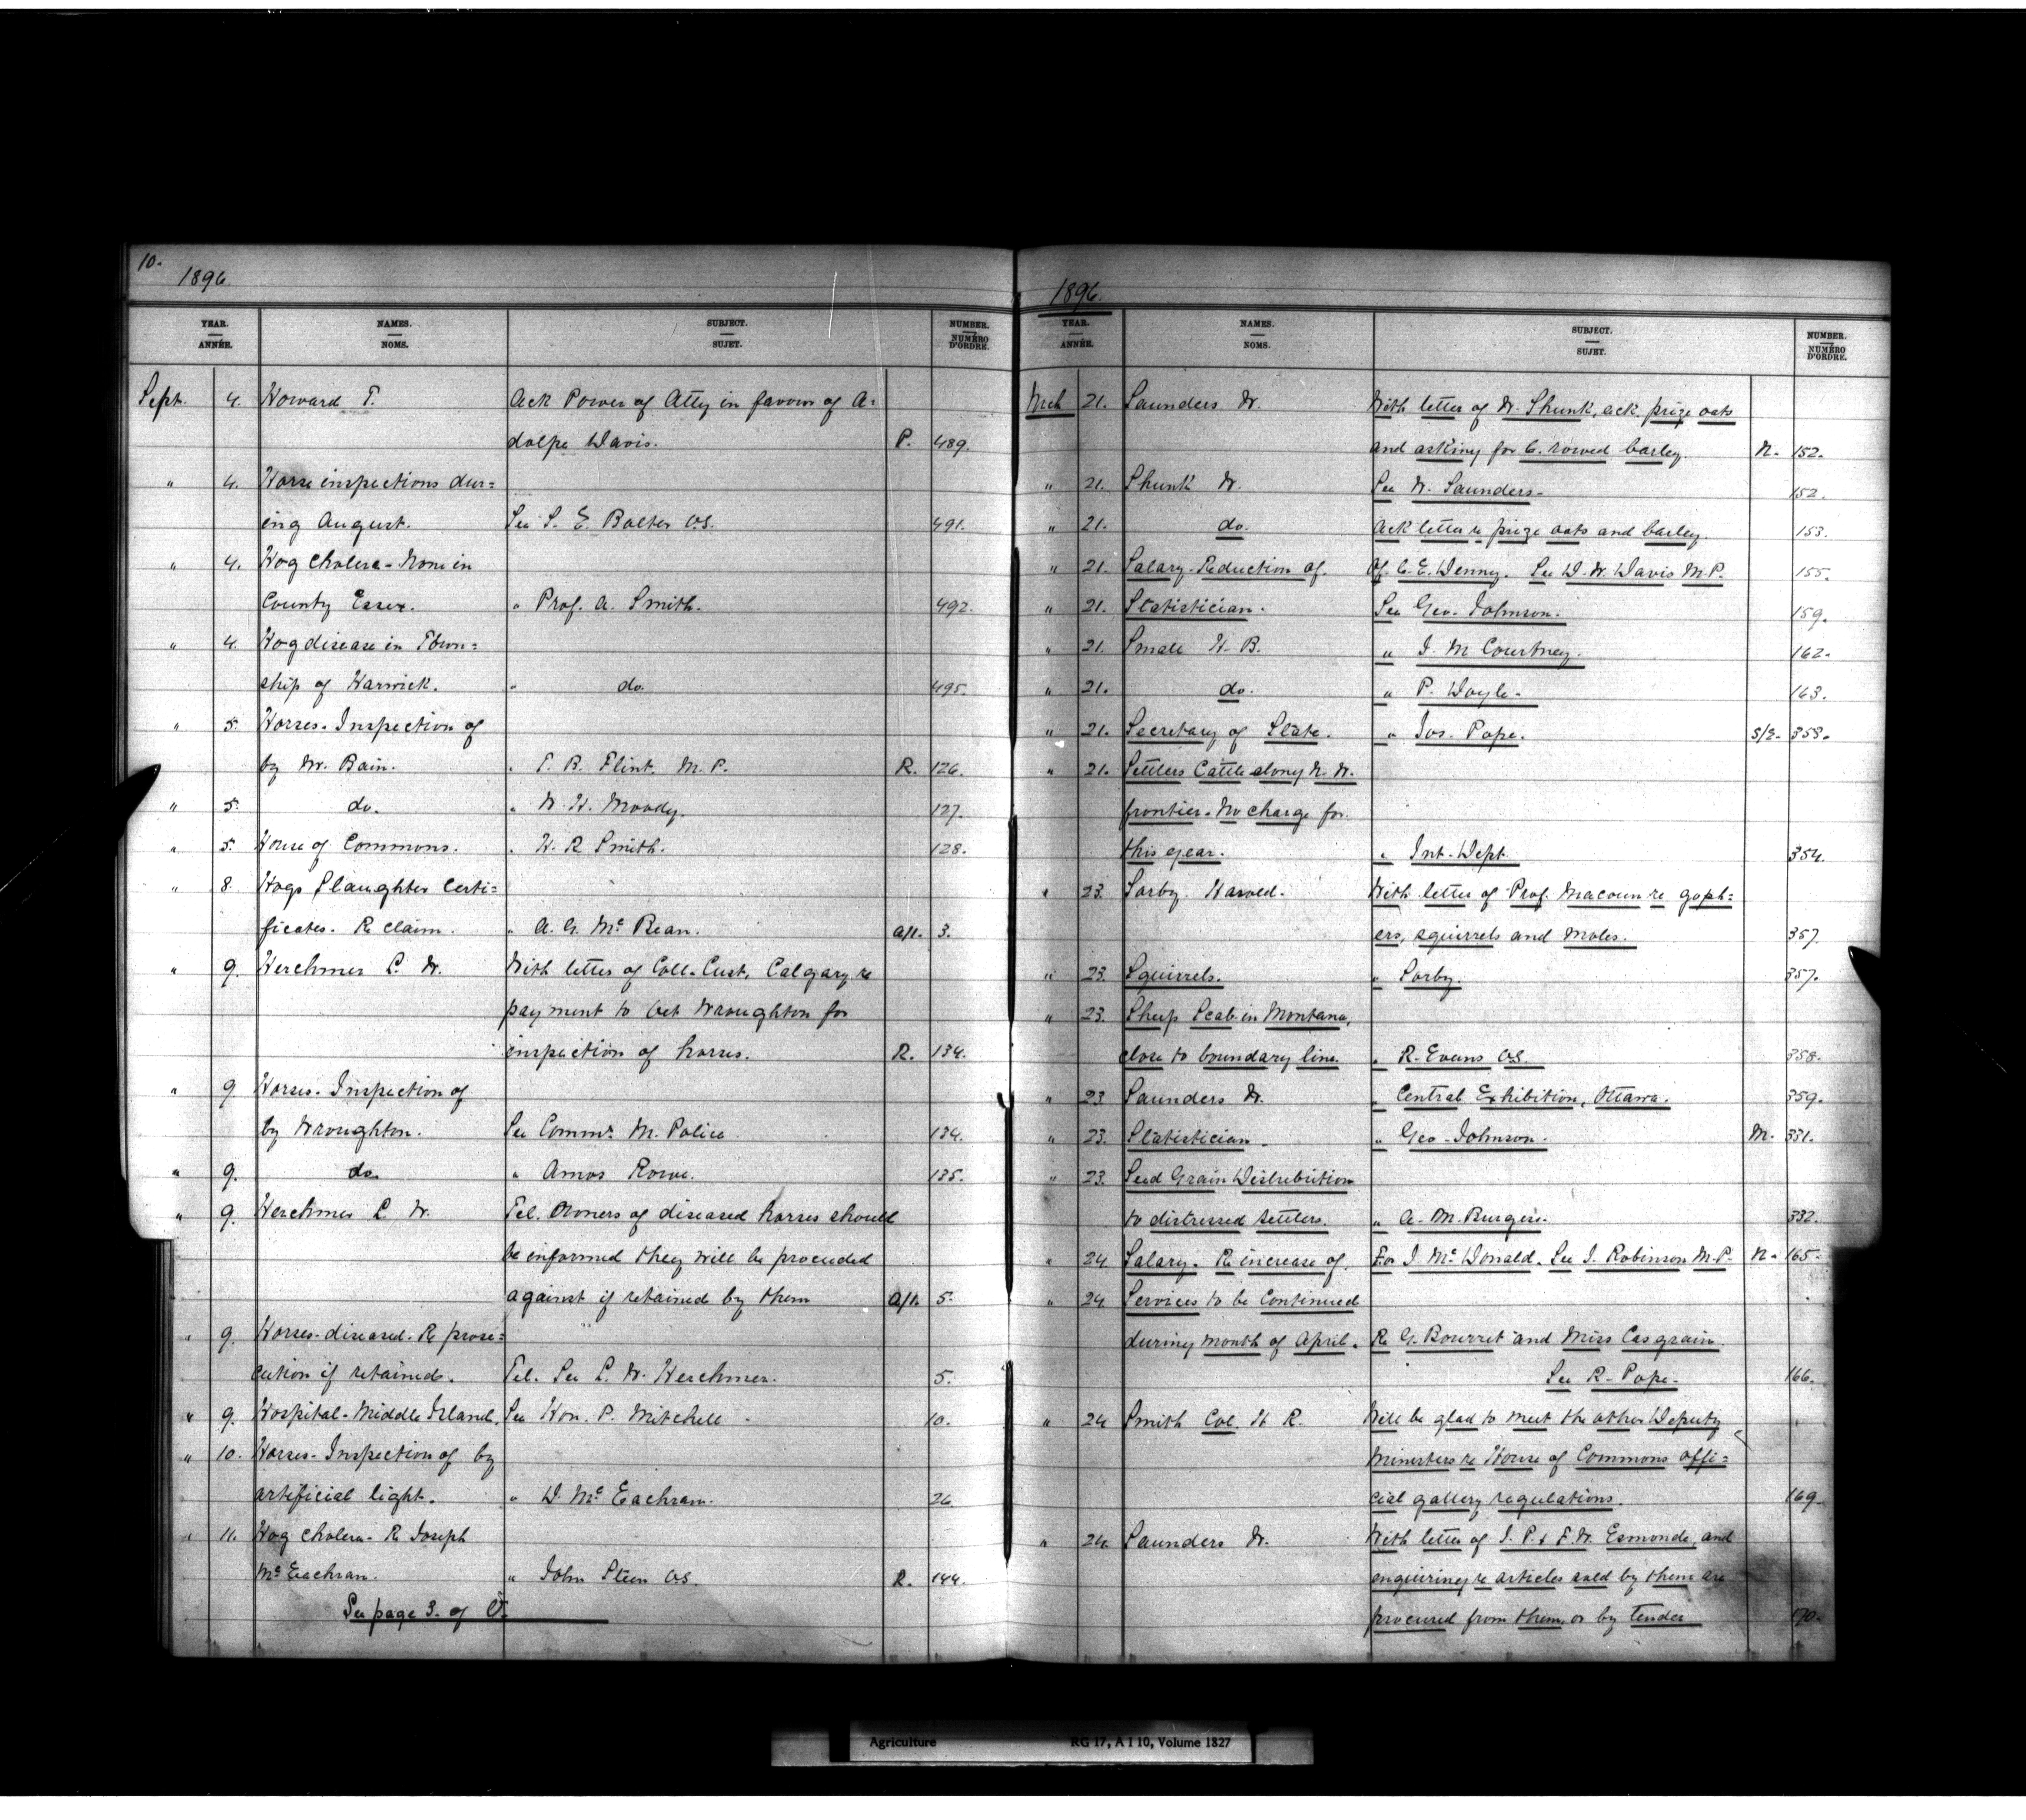 10.
1896
YEAR. NAMES. SUBJECT. NUMBER.
ANNÉE. NOMS. SUJET. NUMÉRO D'ORDRE.
Sept. 4. Howard T. Ack Power of Atty in favour of A-
dolpe Davis. P. 489.
" 4. Horse inspections dur-
ing August. See S. E. Bolter VS. 491.
" 4. Hog Cholera - None in
County Essex. " Prof. A. Smith. 492.
" 4. Hog disease in Town-
ship of Warwick. " do. 495.
" 5. Horses - Inspection of
by Mr. Bain. " T. B. Flint. M.P. R. 126.
" 5. do. " W. H. Moody. 127.
" 5. House of Commons. " H. R. Smith. 128.
" 8. Hogs Slaughter Certi-
ficates. Re claim. " A. G. McBean. A/1. 3.
" 9. Herchmer L. W. With letter of Coll. Cust, Calgary, re
payment to Vet Wroughton for
inspection of horses. R. 134.
" 9. Horses - Inspection of
by Wroughton. See Commr. M. Police 134.
" 9. do. " Amos Rowe. 135.
" 9. Herchmer L. W. Tel. Owners of diseased horses should
be informed they will be proceeded
against if retained by them A/1. 5.
" 9. Horses - diseased - Re prose-
cution if retained. Tel. See L. W. Herchmer. 5.
" 9. Hospital - Middle Island. See Hon. P. Mitchell. 10.
" 10. Horses - Inspection of by
artificial light. " D. McEachran. 26.
" 11. Hog Cholera - Re Joseph
McEachran. " John Steen VS. R. 144.
See page 3. of
1896.
YEAR. NAMES. SUBJECT. NUMBER.
ANNÉE. NOMS. SUJET. NUMÉRO D'ORDRE.
Mch 21. Saunders W. With letter of W. Shunk, ack prize oats
and asking for 6. rowed barley. N. 152.
" 21. Shunk W. See W. Saunders. 152.
" 21. do. Ack letter re prize oats and barley. 153.
" 21. Salary - Reduction of. Of C. E. Denny. See D. W. Davis M.P. 155.
" 21. Statistician. See Geo. Johnson. 159.
" 21. Small H. B. " J. M Courtney. 162.
" 21. do. " P. Doyle. 163.
" 21. Secretary of State. " Jos. Pope. S/2. 353.
" 21. Settlers Cattle along N. W.
frontier - No charge for
this year. " Int. Dept 354.
" 23. Sorby Harold. With letter of Prof. Macoun re goph-
ers, squirrels and moles. 357.
" 23. Squirrels. " Sorby. 357.
" 23. Sheep Scab in Montana,
close to boundary line. " R. Evans VS. 358.
" 23 Saunders W. " Central Exhibition, Ottawa. 359.
" 23. Statistician. " Geo. Johnson. M. 331.
" 23. Seed Grain Distribution
to distressed settlers. " A. M. Burgess. 332.
" 24. Salary - Re increase of. For J. McDonald. See J. Robinson M.P. N. 165.
" 24 Services to be Continued
during month of April. Re G. Bourret and Miss Casgrain
See R. Pope. 166.
" 24 Smith Col. H R. Will be glad to meet the other Deputy
Ministers re House of Commons offi-
cial gallery regulations. 169.
" 24. Saunders W. With letter of J. P. & F. W. Esmonde, and
enquiring re articles sold by them are
procured from them, or by tender 170.
Agriculture RG 17, A I 10, Volume 1827